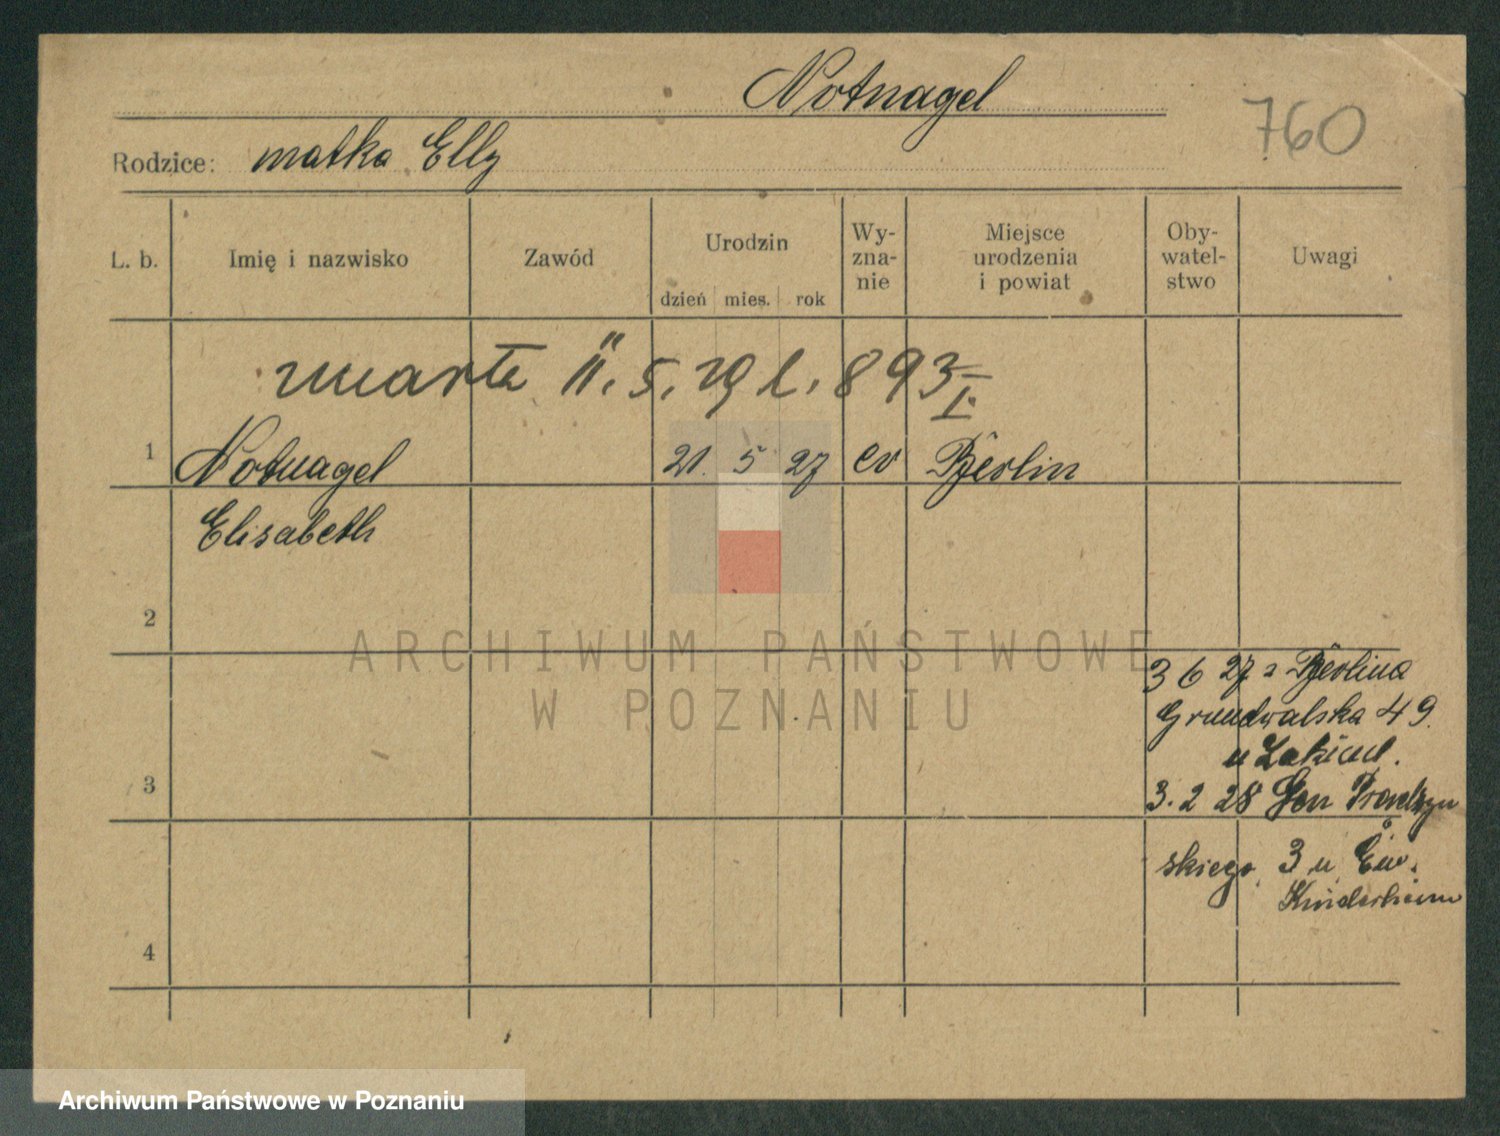 Notnagel
760
Rodzice: matka Elly
L. b.
Imię i nazwisko
Zawód
Urodzin
dzień mies. rok
Wy-
zna-
nie
Miejsce
urodzenia
i powiat
Oby-
watel-
stwo
Uwagi
zmarła 11. 5. 29 l. 893 I.
1 Notnagel 21. 5 27 ev Berlin
Elisabeth
2
ARCHIWUM PAŃSTWOWE
W POZNANIU
3 6 27 z Berlina
Grundwalska 49.
u
3
3. 2 28 Gen Prondzyn
skiego 3 u Ew.
Kinderheim
4
Archiwum Państwowe w Poznaniu